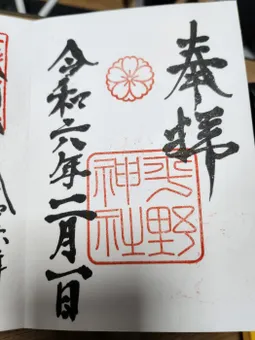 奉拝
平野
神社
令和六年二月一日